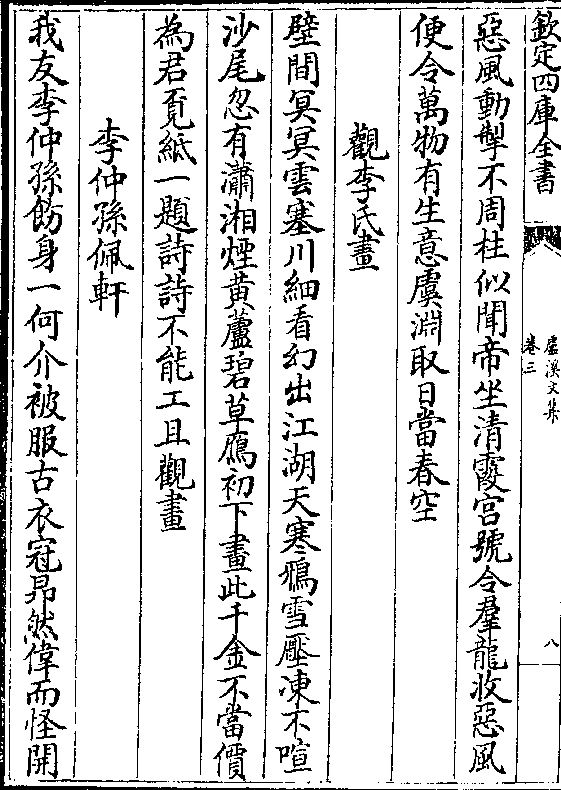 欽定四庫全書
盧溪文集
卷三
八
惡風動掣不周柱似聞帝坐清霞宮號令羣龍收惡風
便令萬物有生意虞淵取日當春空
觀李氏畫
壁間冥冥雲塞川細看幻出江湖天寒鴉雪壓凍不喧
沙尾忽有瀟湘煙黄蘆碧草鴈初下畫此千金不當價
為君覔紙一題詩詩不能工且觀畫
李仲孫佩軒
我友李仲孫飭身一何介被服古衣冠昂然偉而怪開